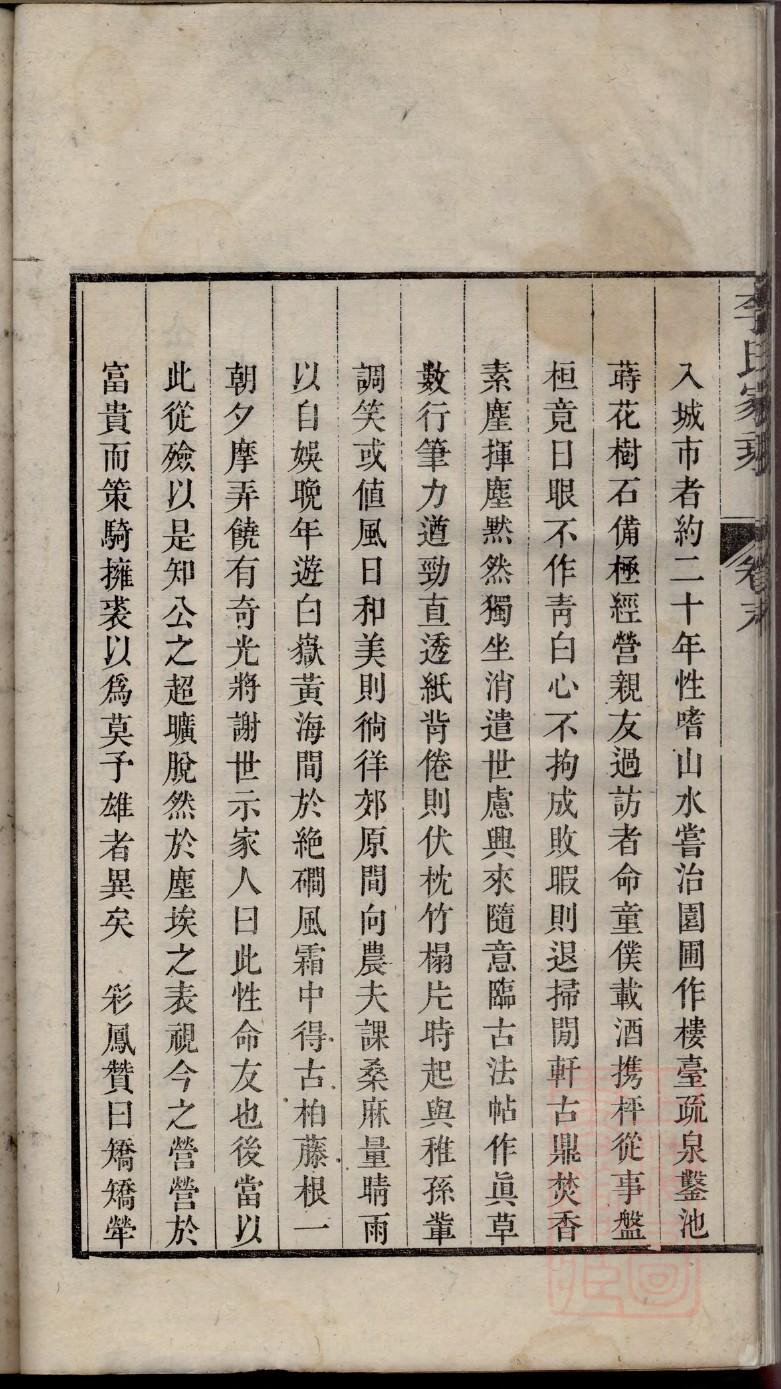 李氏家
卷末
入城市者約二十年性嗜山水嘗治園圃作樓臺疏泉鑿池
蒔花樹石備極經營親友過訪者命童僕載酒携枰從事盤
桓竟日眼不作靑白心不拘成敗暇則退掃閒軒古鼎焚香
素麈揮塵黙然獨坐消遣世慮興來隨意臨古法帖作眞草
數行筆力遒勁直透紙背倦則伏枕竹榻片時起與稚孫輩
調笑或値風日和美則徜徉郊原間向農夫課桑麻量晴雨
以自娛晩年遊白嶽黃海間於絶磵風霜中得古柏藤根一
朝夕摩弄饒有奇光將謝世示家人曰此性命友也後當以
此從殮以是知公之超曠脫然於塵埃之表視今之營營於
富貴而策騎擁裘以爲莫予雄者異矣　彩鳳贊曰矯矯犖